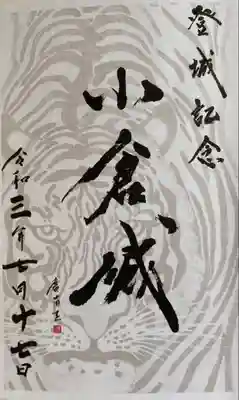 登城記念
小倉城
令和三年七月十七日